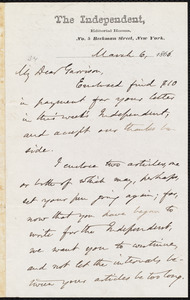 The Independent,
Editorial Rooms,
No. 5 Beekman Street, New York.
March 6, 1866
My Dear Garrison,
Enclosed find $10
in payment for your letter
in this week's Independent,
and accept our thanks be-
side.
I enclose two articles, one
or both of which may, perhaps,
set your pen going again; for,
now that you have begun to
write for the Independent,
we want you to continue,
and not let the intervals be-
tween your articles be too long.